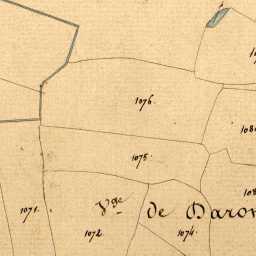 1076.
1075.
1071.
Vge de Daron
1072
1074.